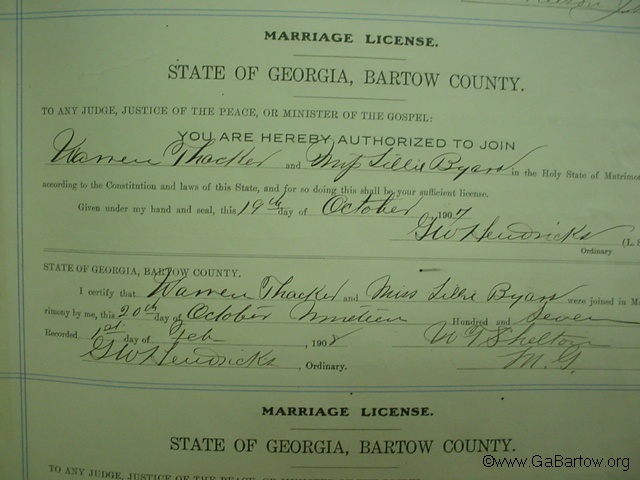 MARRIAGE LICENSE.
STATE OF GEORGIA, BARTOW COUNTY.
TO ANY JUDGE, JUSTICE OF THE PEACE, OR MINISTER OF THE GOSPEL:
YOU ARE HEREBY AUTHORIZED TO JOIN
Warren Thacker and Miss Lillie Byars in the Holy State of Matrimo
according to the Constitution and laws of this State, and for so doing this shall be your sufficient license.
Given under my hand and seal, this 19th day of October 1907
GW Hendricks (L. S
Ordinary
STATE OF GEORGIA, BARTOW COUNTY.
I certify that Warren Thacker and Miss Lillie Byars were joined in M
rimony by me, this 20th day of October Nineteen Hundred and Seven
Recorded 1st day of Feb , 1908 W T Shelton
GW Hendricks , Ordinary. M. G.
MARRIAGE LICENSE.
STATE OF GEORGIA, BARTOW COUNTY.
TO ANY JUDGE, JUSTICE OF THE PEACE, OR MINISTER OF THE GOSPEL:
©www.GaBartow.org